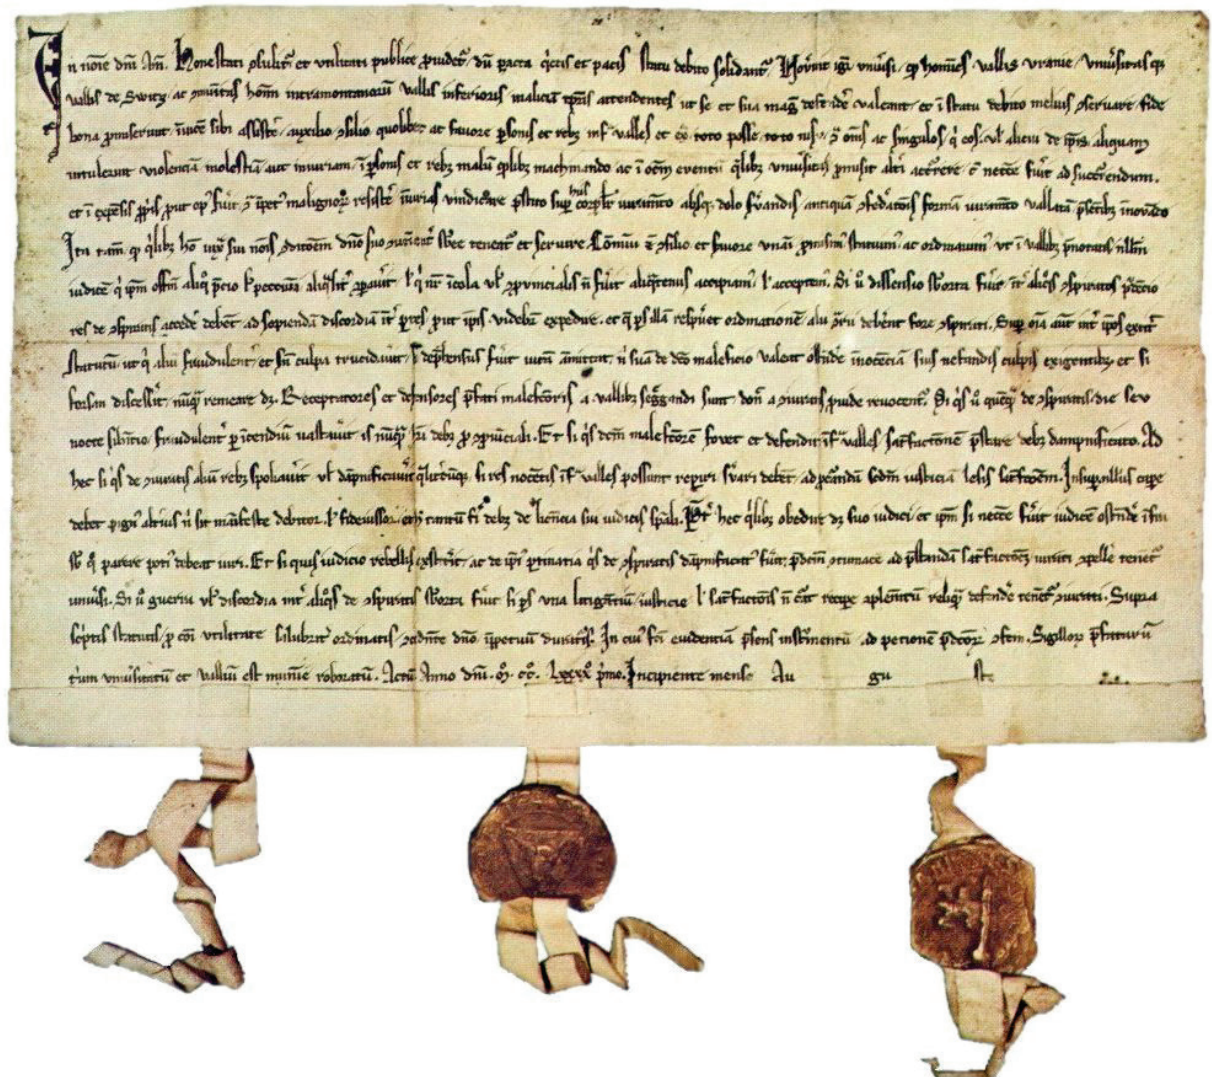 In noīe dnī Am̄. Honestati ꝯsulit᷑ et utilitati publice ꝓuidet᷑ dū pacta qͥetis et pacis statu debito solidant᷑. Nou̓int igͥ uniu̓si, qp homīes vallis uranie uniu̓sitasqꝫ
vallis de Switz ac ꝯmūitas hom̄ intramontanorū vallis inferioris maliciā tp̄ris attendentes ut se et sua maḡ defēde̓ valeant et ī statu debito melius ꝯseruare fide
bona ꝓmiserunt īuicē sibi assiste̓ auxilio ꝯsilio quolibet ac fauore ꝑsonis et rebꝫ inf͛ valles et ex̄ toto posse toto nisu ꝯ͛ om̄s ac singulos qͥ eos vl̓ alicui de ip̄is aliquam
intulerint violenciā molestiā aut iniuriam ī ꝑsonis et rebꝫ malū qͦdlibꝫ machinando ac ī oēm euentū qͥlibꝫ uniu̓sitas ꝓmisit alt̓i accu̓rere cū necc̄e fu̓it ad succu̓rendum.
et ī expēsis ꝓp̓is ꝓut op᷒ fu̓it ꝯ͛ īpet᷒ malignoꝝ resiste̓ īiurias vindicare p̓stito suꝑ hiis corꝑalr̓ iuramēto absqꝫ dolo s̓uandis antiquā ꝯfedatōis formā iuramēto vallatā p̓sētibꝫ īnouādo
Ita tam̄ qp qͥlibꝫ hō iuxͣ sui nōis ꝯditōem dn̄o suo ꝯueniēt᷑ sb̓ee teneat᷑ et seruire. Cōmuni ē ꝯsilio et fauore unāi ꝓmisim᷒ statuim᷒ ac ordinauim᷒ ut ī vallibꝫ p̓notatis nllm̄
iudicē qͥ ip̄m offm̄ aliqͦ p̓cio vl̓ peccunia aliqͣlit̓ ꝯpau̓it vl̓ qͥ nr̄ īcola vl̓ ꝓvincialis nō fu̓it aliqͣtenus accipiam᷒ vl̓ acceptem᷒. Si ů dissensio sb̓orta fu̓it īt̓ aliqͦs ꝯspiratos p̓dēcio
res de ꝯspiratis accede̓ debēt ad sopiendā discordiā īt̓ ꝑtes ꝓut ip̄is videbit᷑ expedire. et q̄ ꝑs illā respu̓et ordinationē alii ꝯ͛rii deb̓ent fore ꝯspirati. Suꝑ oīa aūt int̓ ip̄os extit̓
statutū. ut qͥ aliū fraudulent̓ et sn̄ culpa trucidau̓it si dep̓hensus fu̓it uitā āmittat nͥ suā de dc̄o maleficio valeat ostēde̓ īnocēciā suis nefandis culpis exigentibꝫ et si
forsan discessi̓it nūqͣ remeare dꝫ. Receptatores et defensores p̓fati malefc̄oris a vallibꝫ seg̓gandi sunt. don̄ a ꝯiuratis ꝓuide reuocent᷑. Si qͥs ů quēqͣ de ꝯspiratis die seu
nocte silēcio fraudulent̓ ꝑ īcendiū uastau̓it is nūqͣ hr̄i debꝫ ꝓ ꝯꝓuīciali. Et si qͥs dc̄m malefc̄orē fouet et defendit īf͛ valles satͥsfactōnē p̓stare debꝫ dampnificato. Ad
hec si qͥs de ꝯiuratis aliū rebꝫ spoliau̓it vl̓ dāpnificau̓it qͣlit̓cūqꝫ si res nocētis īf͛ valles possunt repiri s̓uari debēt ad ꝓcurandā sc̄dm iusticiā lesis satͥsfc̄oēm. Insuꝑ nullus caꝑe
debet pig᷒ alteri᷒ nͥ sit māifeste debitor. vl̓ fideiussor. et hͦ tantū fi̓ debꝫ de licencia sui iudicis sp̄ali. Pt̓ hec qͥlibꝫ obedire dꝫ suo iudici et ip̄m si necc̄e fu̓it iudicē ostēde̓ īfra
sb̓ qͦ parere poti᷒ debeat iuri. Et si quis iudicio rebellis exstiti̓t ac de ip̄i᷒ ꝑtinatia qͥs de ꝯspiratis dāpnificat᷒ fu̓it. p̓dc̄m ꝯtumacē ad p̓standā satͥsfactōēꝫ iurati ꝯpelle̓ tenent᷑
uniu̓si. Si ů guerra vl̓ discordia int̓ aliqͦs de ꝯspiratis sb̓orta fu̓it si ꝑs una litigātiū iusticie vl̓ satͥsfactōis nō cūat recipe̓ ꝯplem̄tū reliqͣ defende̓ tenent᷑ ꝯiurati. Supra
sc̓ptis statutis ꝓ cōi utilitate salubrit̓ ordinatis ꝯcedēte dn̄o īꝑpetuū duratu̓is. In cui᷒ fc̄i euidentiā p̓sens inst̓mentū ad peticionē p̓dc̄oꝝ ꝯfectm̄. Sigilloꝝ p̓fatarū
trium uniu̓sitatū et valliū est munimīe roboratū. Actū Anno dnī. m̄. cc̄. Lxxxx̊ p̓mo. Incipiente mense Au gu sto.